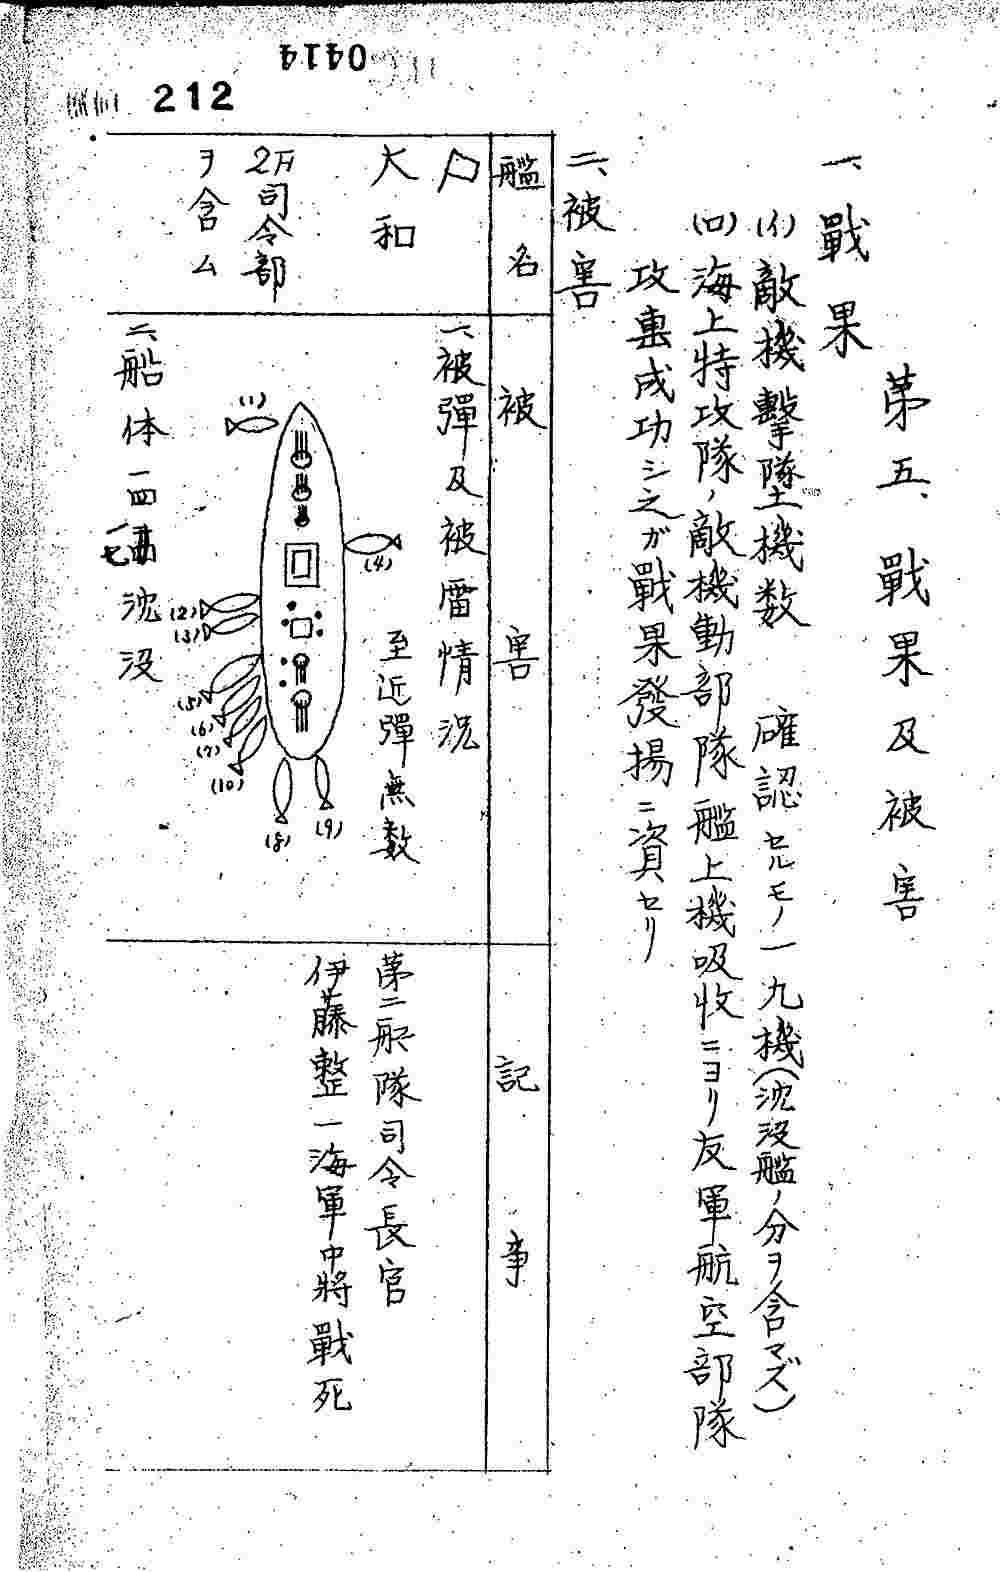 0414
212
第五、戰果及被害
一、戰果
(イ)敵機擊墜機数 確認セルモノ一九機(沈没艦ノ分ヲ含マズ)
(ロ)海上特攻隊ノ敵機動部隊艦上機吸收ニヨリ友軍航空部隊
攻擊成功シ之ガ戰果發揚ニ資セリ
二、被害
艦名
被害
記事
大和
2F司令部
ヲ含ム
一、被彈及被雷情況
至近彈無数
(1)
(4)
(2)
(3)
(5)
(6)
(7)
(10)
(8)
(9)
二、船体一四
沈没
第二艦隊司令長官
伊藤整一海軍中將戰死